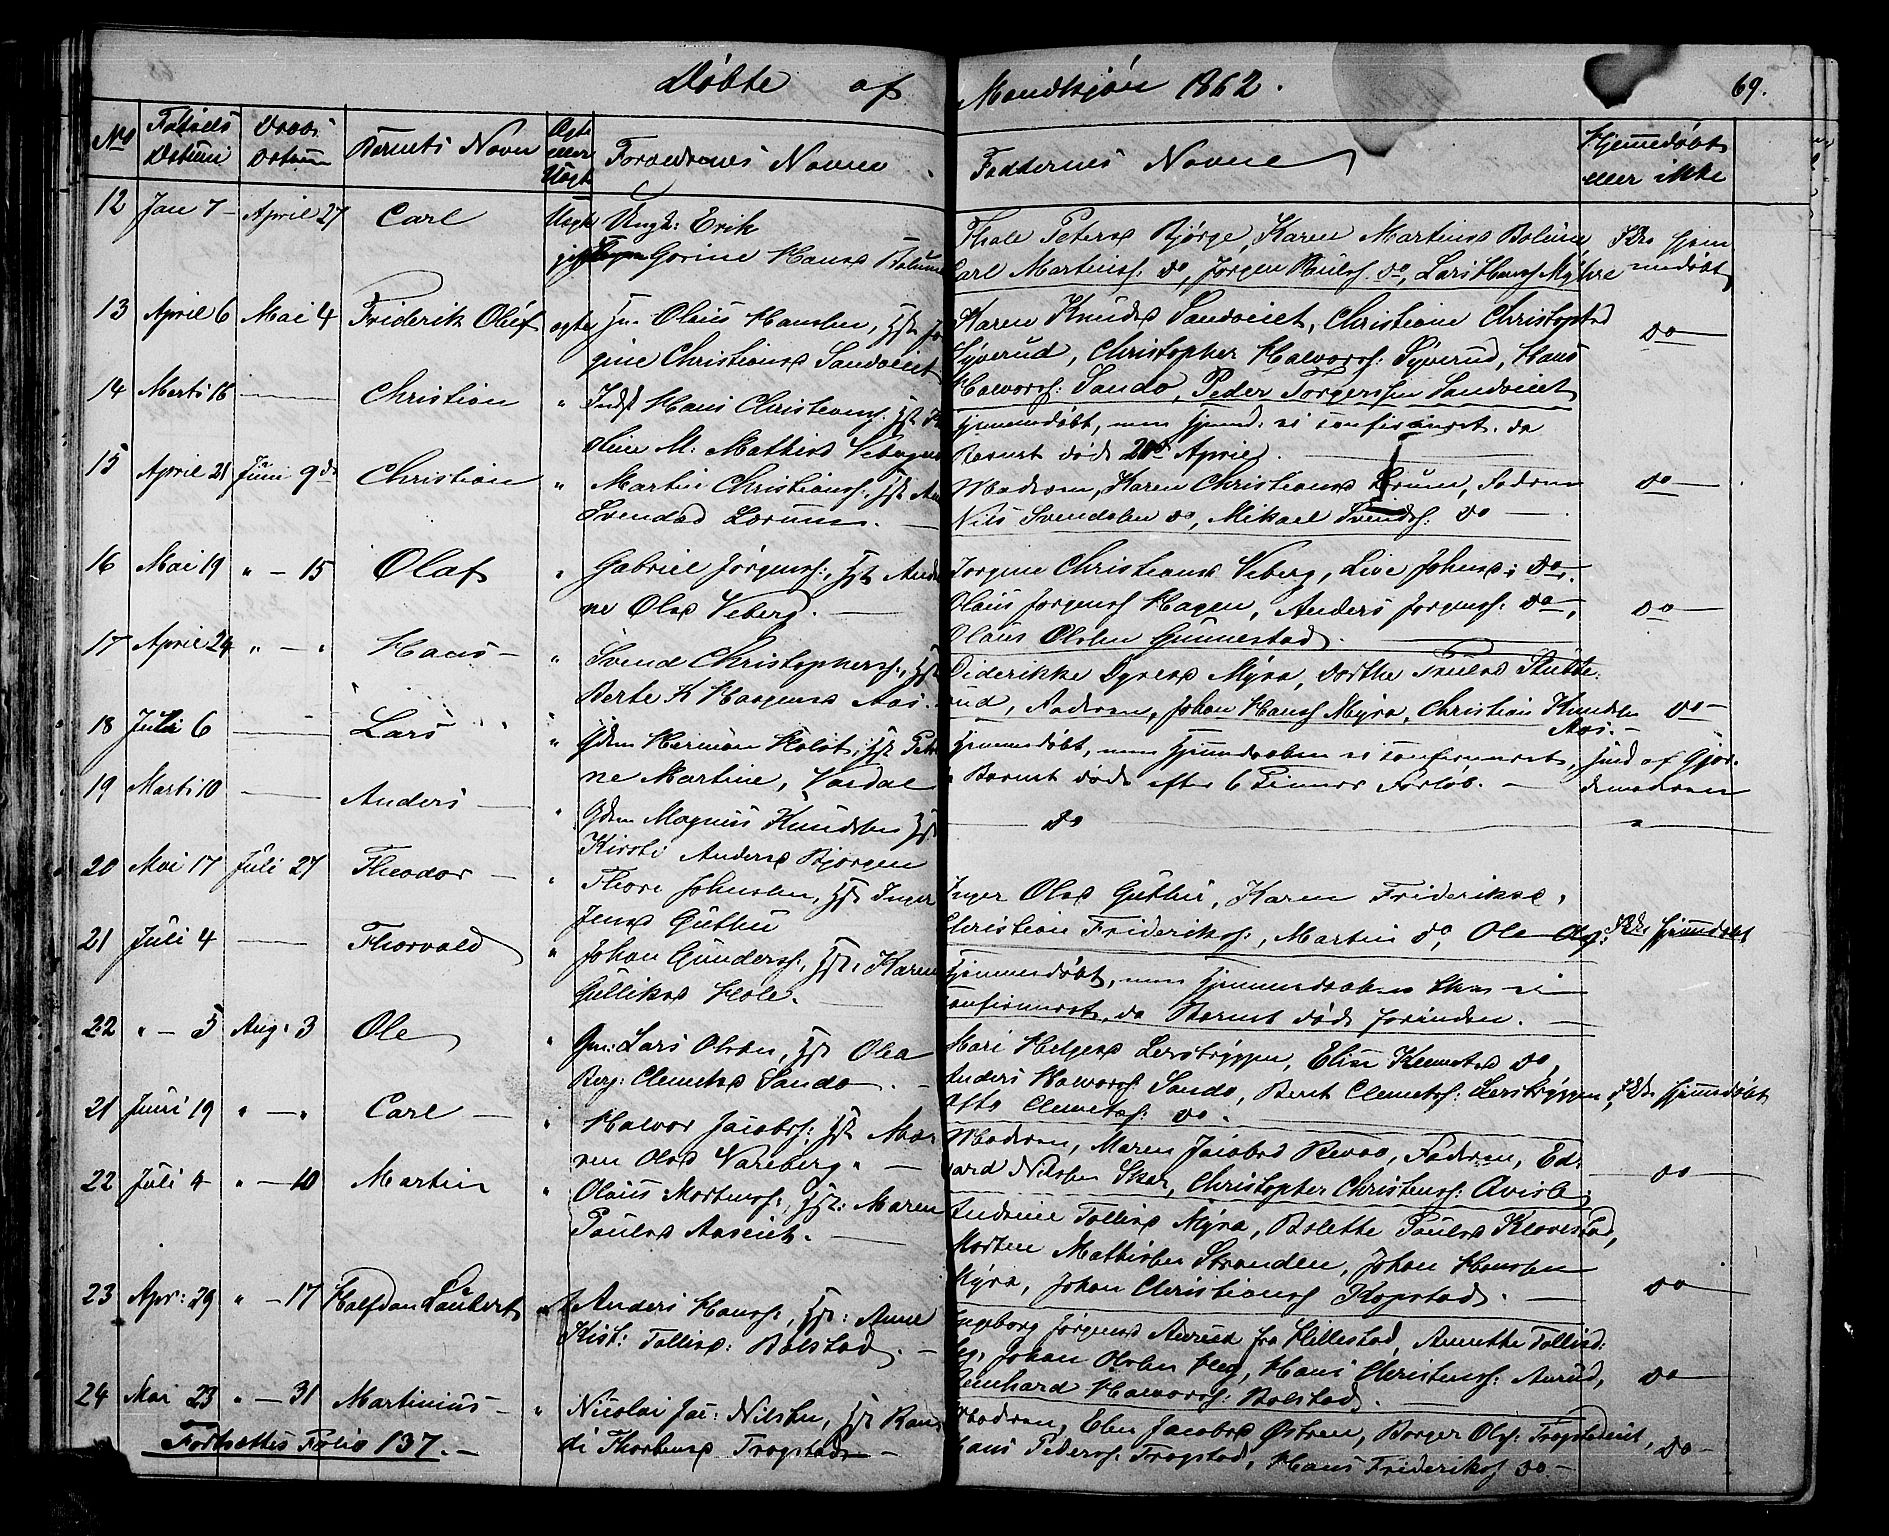 Døbte af Mandkjøn 1862. 69.
No Fødsels Datum Daabs Datum Barnets Navn Ægte eller Uægte Forældrenes Navne Faddernes Navne Hjemmedøbt eller ikke
12 Jan 7 April 27 Carl Uægte Ungk: Erik
Gorine Hansd Bolume
Thale Petersd Bjørge, Karen Martinsd Bolume
Carl Martinsf. do, Jørgen Paulsf. do, Lars Hansf Myhre
13 April 6 Mai 4 Friderik Oluf ægte Olaus Hansen,
gine Christiansd Sandveiet
Karen Knudsd Sandveiet, Christiane Christophd
Syverud, Christopher Halvorsf: Syverud, Hans
Halvorsf: Sando, Peder Torgersen Sandveiet do
14 Marts 16 Christian " Inds Hans Christians
oline M: Mathisd Veberg
Hjemmedøbt, men ei confirmeret. da
Barnet døde 20de April.
15 April 21 Juni 9de Christian " Martin Christiansf:
Svendsd Lorum
Moderen, Karen Christiansd Lorum, Faderen
Nils Svendsen do, Mikael Svendsf: do do
16 Mai 19 " 15 Olaf " Gabriel Jørgensf:,
ne Olsd Veberg.
Jorgine Christiansd Veberg, Live Johnsd: do
Olaus Jorgensf Hagen, Anders Jorgensf: do,
Olaus Olsen Gunnestad. do
17 April 24 " " Hans " Svend Christophersf:,
Berte K Haagensd Aas.
Diderikke Dyresd Myra, Dorthe Paulsd Stubbe-
rud, Faderen, Johan Hansf Myra, Christian Knudsen
Aas. do
18 Juli 6 Lars " Gdm Herman Holst,
ne Martine, Vardal
Hjemmedøbt, men Hjemmedaaben ei confirmeret,
Barnet døde efter 6 Timers Forløb. af Gjor-
demoderen
19 Marts 10 Anders " Gdm Magnus Knudsen
Kirsti Andersd Bjorgen
do "
20 Mai 17 Juli 27 Theodor " Thore Johnsen, Inger
Jensd Guthu
Inger Olsd Guthu, Karen Frideriksd,
Christian Frideriksf:, Martin do, Ole Hjemmedøbt
21 Juli 4 Thorvald " Johan Gundersf:, Karen
Gulliksd Hole.
Hjemmedøbt, men Hjemmedaaben ei
confirmeret, da Barnet døde forinden.
22 " 5 Aug: 3 Ole " Gm: Lars Olsen, Olea
Berg: Clemetsd Sando.
Mari Helgesd Lerskyggen, Elise Klemetsd do,
Anders Halvorsf: Sando, Bent Clemetsf: Lerskyggen,
Clemetsf: do. Hjemmedøbt
21 Juni 19 " " Carl " Halvor Jacobsf: Ma-
ren Olsd Vareberg.
Moderen, Maren Jacobsd Revaa, Faderen, Ed-
vard Nilsen Skar, Christopher Christensf: Qvisle do
22 Juli 4 " 10 Martin " Olaus Mortensf:, Maren
Paulsd Aaseiet.
Andrine Tollisd Myra, Bolette Paulsd Klovestad,
Morten Mathisen Stranden, Johan Hansen
Myra, Johan Christiansf Kopstad. do
23 Apr: 29 " 17 Halfdan Laubert Anders Hansf:, Anne
Kist: Tollisd: Bolstad.
Ingeborg Jørgensd Aurud fra Hillestad, Annette Tollisd:
Johan Olsen Hey, Hans Christensf: Aurud,
Halvorsf: Bolstad. do
24 Mai 23 " 31 Martinius " Nicolai Jac: Nilsen, Ran-
di Thorbensd Trogstad
Moderen, Elen Jacobsd Østren, Borger Olsf: Trogstadeiet,
Hans Pedersf: Trogstad, Hans Frideriksf do. do
Fortsættes Folio 137.